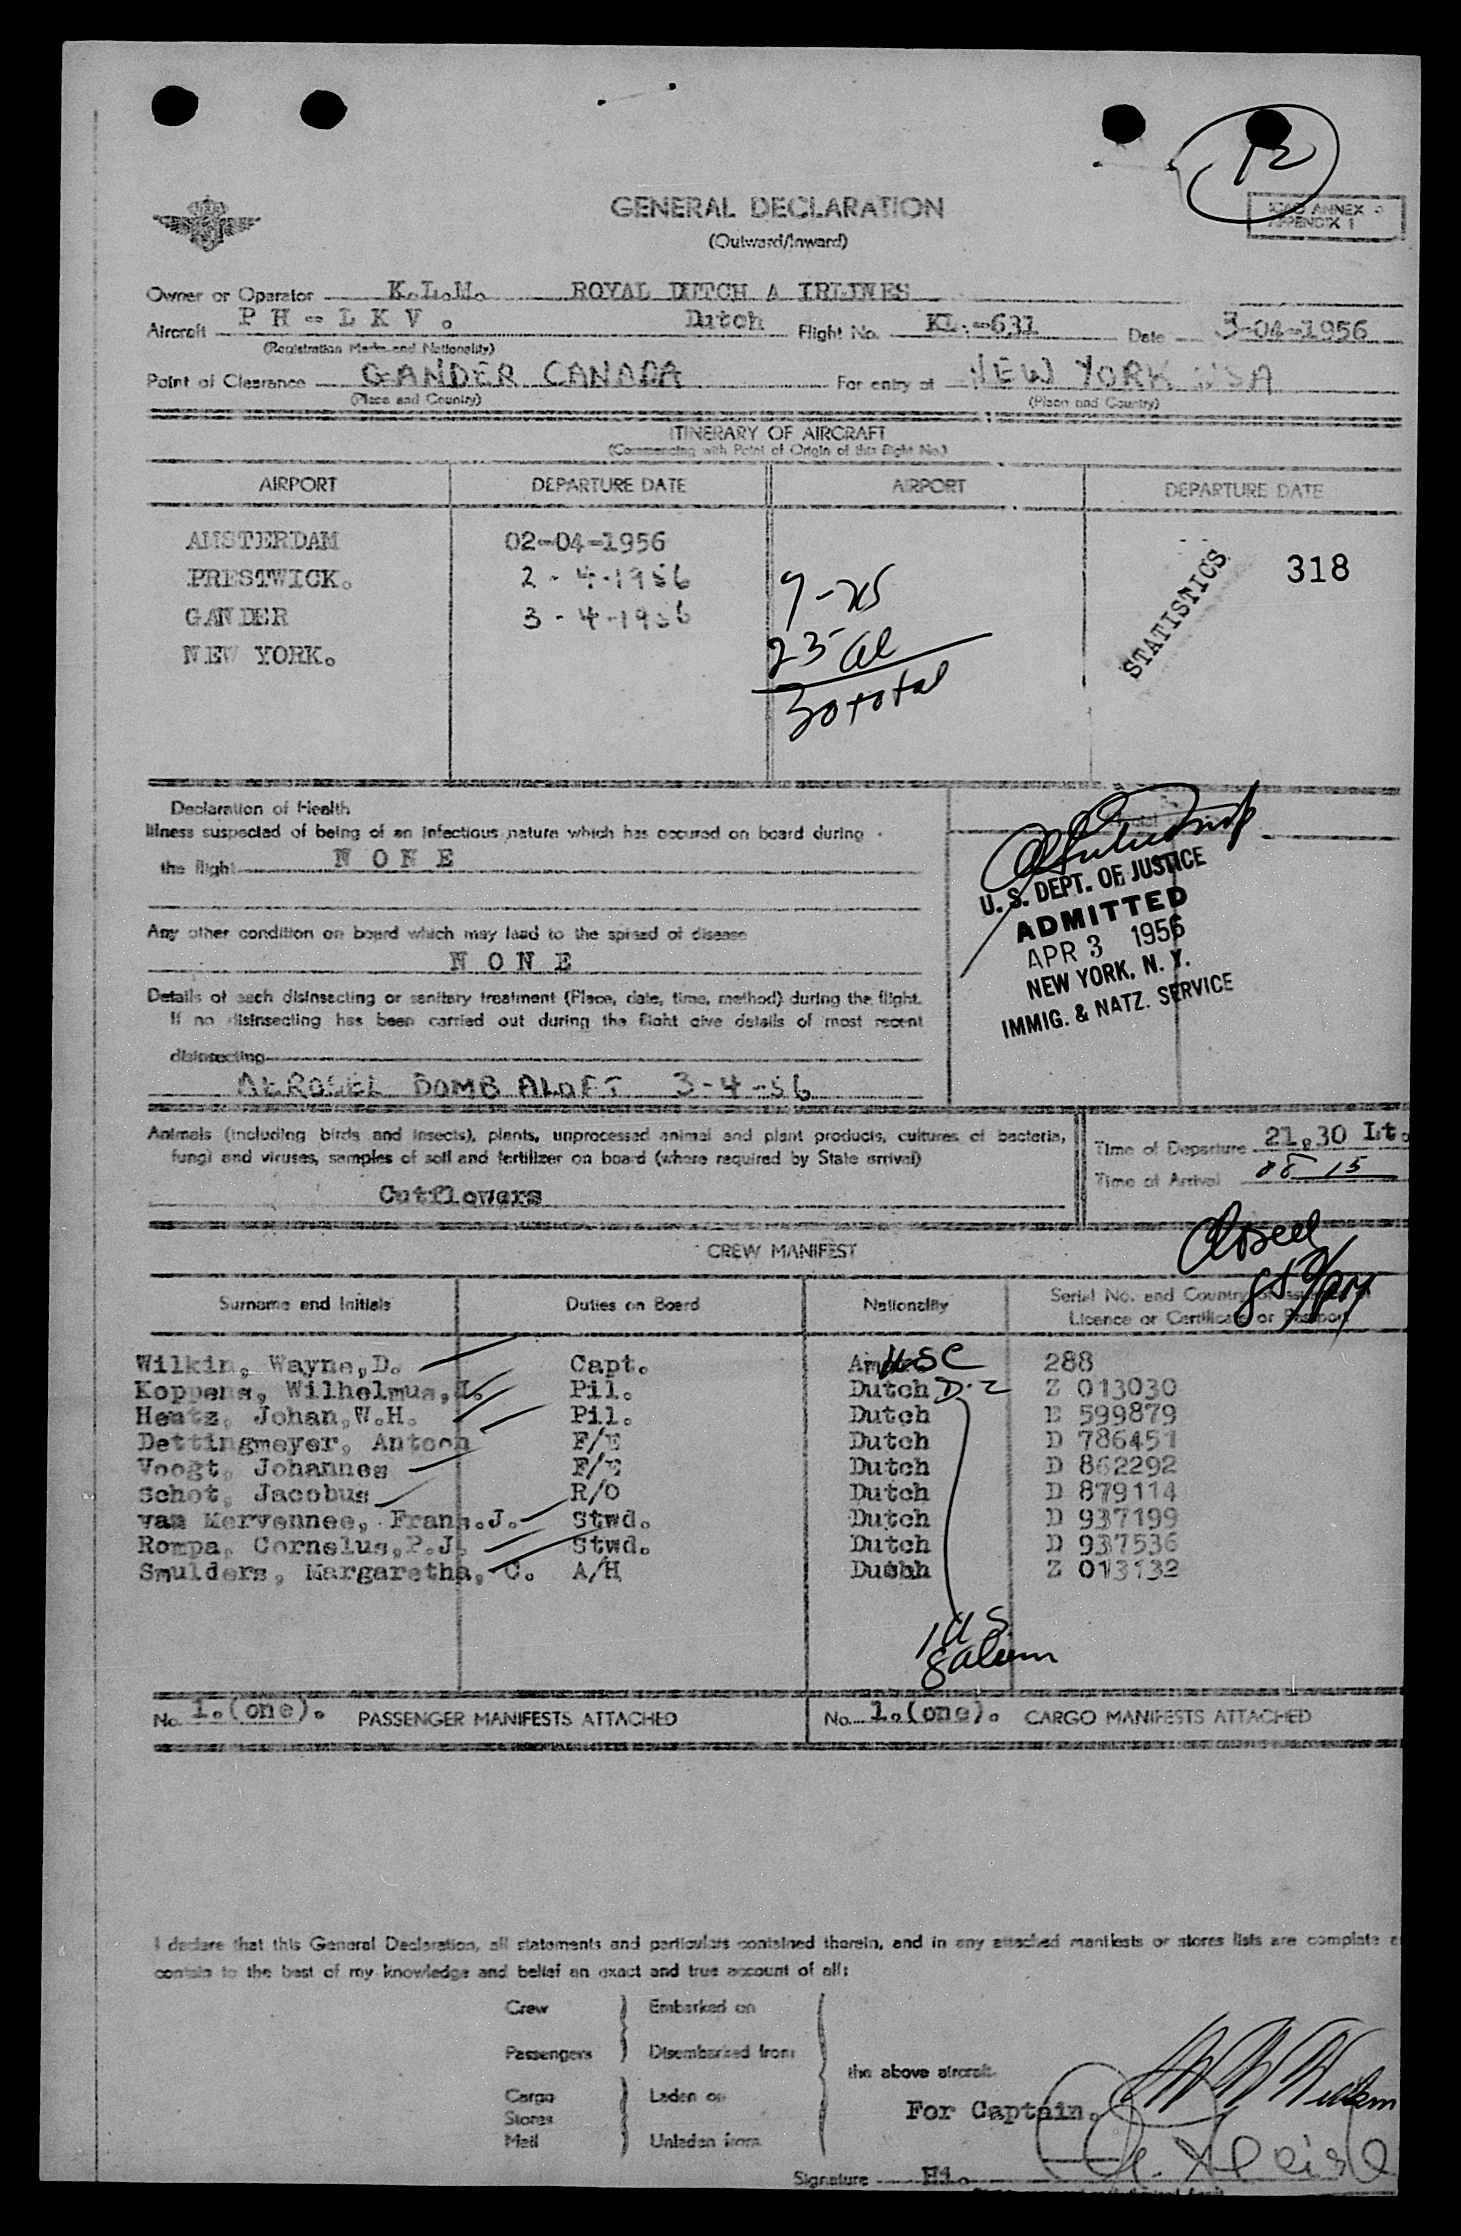 12
GENERAL DECLARATION
(Outward/Inward)
ICAO ANNEX 9
APPENDIX 1
Owner or Operator K.L.M. ROYAL DUTCH A IRLINES
Aircraft P H - L K V . Dutch Flight No. KL.-631 Date 3-04-1956
(Registration Marks and Nationality)
Point of Clearance GANDER CANADA For entry at NEW YORK USA
(Place and Country) (Place and Country)
ITINERARY OF AIRCRAFT
(Commencing with Point of Origin of this flight No.)
AIRPORT DEPARTURE DATE AIRPORT DEPARTURE DATE
AMSTERDAM 02-04-1956
PRESTWICK. 2-4-1956
GANDER 3-4-1956
NEW YORK.
7-US
23 al
30 total
STATISTICS
318
Declaration of Health
Illness suspected of being of an infectious nature which has occured on board during
the flight N O N E
Any other condition on board which may lead to the spread of disease
N O N E
Details of each disinsecting or sanitary treatment (Place, date, time, method) during the flight.
If no disinsecting has been carried out during the flight give details of most recent
disinsecting
AEROSEL BOMB ALOFT 3-4-56
U.S. DEPT. OF JUSTICE
ADMITTED
APR 3 1956
NEW YORK, N. Y.
IMMIG. & NATZ. SERVICE
Animals (including birds and insects), plants, unprocessed animal and plant products, cultures of bacteria,
fungi and viruses, samples of soil and fertilizer on board (where required by State arrival)
Cutflowers
Time of Departure 21.30 Lt.
Time of Arrival 08 15
Closed
CREW MANIFEST
Surname and Initials Duties on Board Nationality Serial No. and Country of
Licence or Certificate or Passport
Wilkin, Wayne,D. Capt. USC 288
Koppens, Wilhelmus, Pil. Dutch D-2 Z 013030
Hentz, Johan,W.H. Pil. Dutch E 599879
Dettingmeyer, Antoon F/E Dutch D 786451
Voogt, Johannes F/E Dutch D 862292
Schot, Jacobus R/O Dutch D 879114
van Mervennee, Frans.J. Stwd. Dutch D 937199
Rompa, Cornelus,P.J. Stwd. Dutch D 937536
Smulders, Margaretha, C. A/H Dutch Z 013132
1 U.S.
8 alien
No. 1.(one). PASSENGER MANIFESTS ATTACHED No. 1.(one). CARGO MANIFESTS ATTACHED
I declare that this General Declaration, all statements and particulars contained therein, and in any attached manifests or stores lists are complete
contain to the best of my knowledge and belief an exact and true account of all:
Crew Embarked on
Passengers Disembarked from
the above aircraft.
Cargo Laden on
Stores
Mail Unladen from
For Captain.
Signature